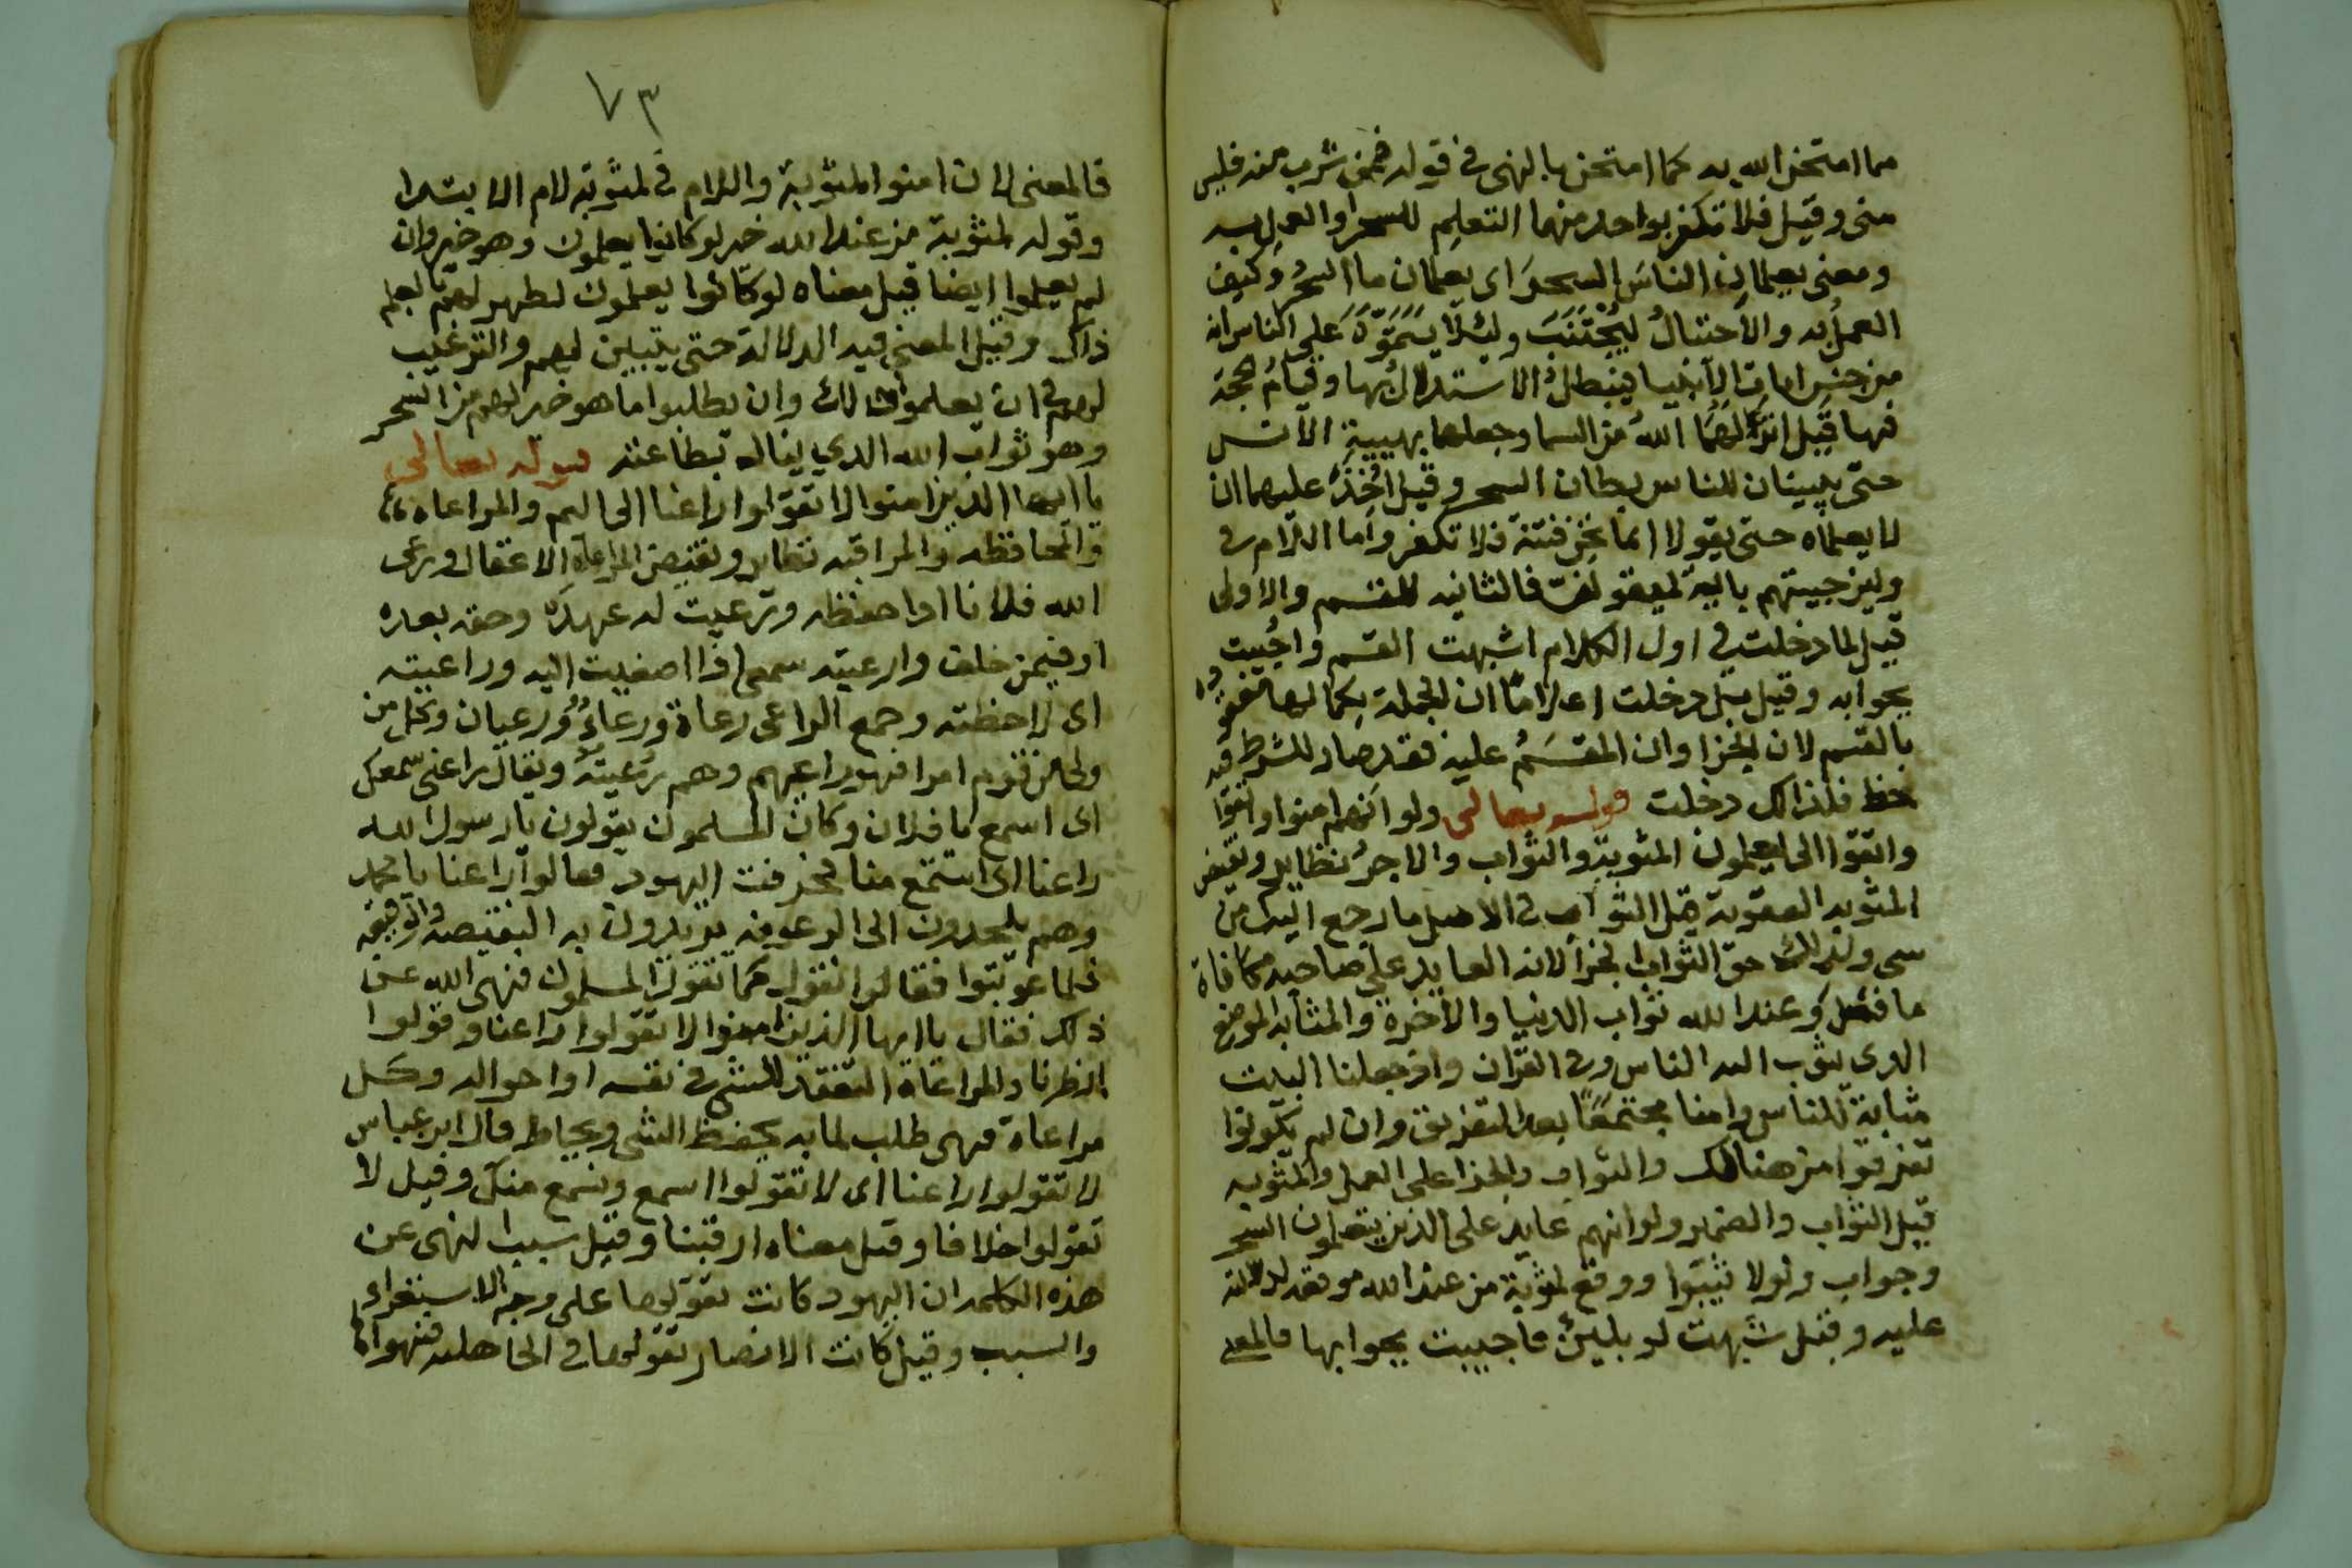 مما امتحن الله به كما امتحن بالنهر في قوله فمن شرب منه فليس
مني وقيل فلا تكفر بواحد منهما التعليم للسحر او العمل به
ومعنى يعلمان الناس السحر اى يعلمان ما السحر وكيف
العمل به والاحتنال ليجتنب ولئلا يتموه على الناس انه
من جنس ايات الانبيا فيبطل الاستدلال بها وقيام حجة
فيها قيل انزلهما الله من السما وجعلهما بهيية الانس
حتى يبينان للناس بطلان السحر وقيل اخذ عليهما ان
لا يعلماه حتى يقولا انما نحن فتنة فلا تكفر واما اللام في
ولين جيتهم باية ليقولن فالثانيه للقسم والاولى
قيل لما دخلت في اول الكلام اشبهت القسم واجيبت
بجوابه وقيل بل دخلت اعلاما ان الجملة بكمالها معقودة
بالقسم لان الجزا وان المقسم عليه فقد صار للشرط فيه
حظ فلذالك دخلت قوله تعالى ولو انهم امنوا واتقوا
واتقوا الى يعلمون المثوبة والثواب والاجر نظاير ونقيض
المثوبه العقوبة قيل الثواب في الاصل ما رجع اليك من
شي ولذلك حق الثواب الجزا لانه العايد على صاحبه مكافاة
ما فعل وعند الله ثواب الدنيا والاخرة والمثابه الموضع
الذى يثوب اليه الناس وفى القران واذ جعلنا البيت
مثابة للناس وامنا مجتمعا بعد التفريق وان لم يكونوا
تفرقوا من هنالك والثواب والجزا على العمل والمثوبه
قيل الثواب والضمير ولو انهم عايد على الذين يتعلمون السحر
وجواب ولو لا ثيبوا ووقع لمثوبة من عند الله موقعه لدلالته
عليه وقيل شبهت لو بلين فاجيبت بجوابها فالمعنى
٧٣
فالمعنى لان امنوا لمثوبة واللام في لمثوبة لام الابتدا
وقوله لمثوبة من عند الله خير لو كانوا يعلمون وهو خير وان
لم يعلموا ايضا قيل معناه لو كانوا يعلمون لظهر لهم بالعلم
ذاك وقيل المعنى فيه الدلالة حتى يتبين لهم والترغيب
لهم في ان يعلموا ذلك وان يطلبوا ما هو خير لهم من السحر
وهو ثواب الله الذي ينال بطاعته قوله تعالى
يا ايها الذين امنوا لا تقولوا راعنا الى اليم والمراعاه
والمحافظه والمراقبه نظاير ونقيض المراعاة الاغفال ورعى
الله فلانا اذا حفظه ورعيت له عهده وحقه بعده
او فيمن خلف وارعيته سمعى اذا اصغيت اليه وراعيته
اى لاحظته وجمع الراعى رعاة ورعاء ورعيان وكل من
ولى من قوم امرا فهو راعيهم وهم رعيته ويقال راعنى سمعك
اى اسمع يا فلان وكان المسلمون يقولون يا رسول الله
راعنا اى استمع منا فحرفت اليهود فقالوا راعنا يا محمد
وهم يلحدون الى الرعونه يريدون به النقيصه والوقيعه
فلما عوتبوا فقالوا نقول كما تقول المسلمون فنهى الله عن
ذلك فقال يا ايها الذين امنوا لا تقولوا راعنا وقولوا
انظرنا والمراعاة التفقد للشي في نفسه او احواله وكل
مراعاة فهى طلب لما به يحفظ الشي ويحاط قال ابن عباس
لا تقولوا راعنا اى لا تقولوا اسمع ونسمع منك وقيل لا
تقولوا خلافا وقيل معناه ارقبنا وقيل سبب النهى عن
هذه الكلمه ان اليهود كانت تقولها على وجه الاستهزاء
والسب وقيل كانت الانصار تقولها في الجاهليه فنهوا